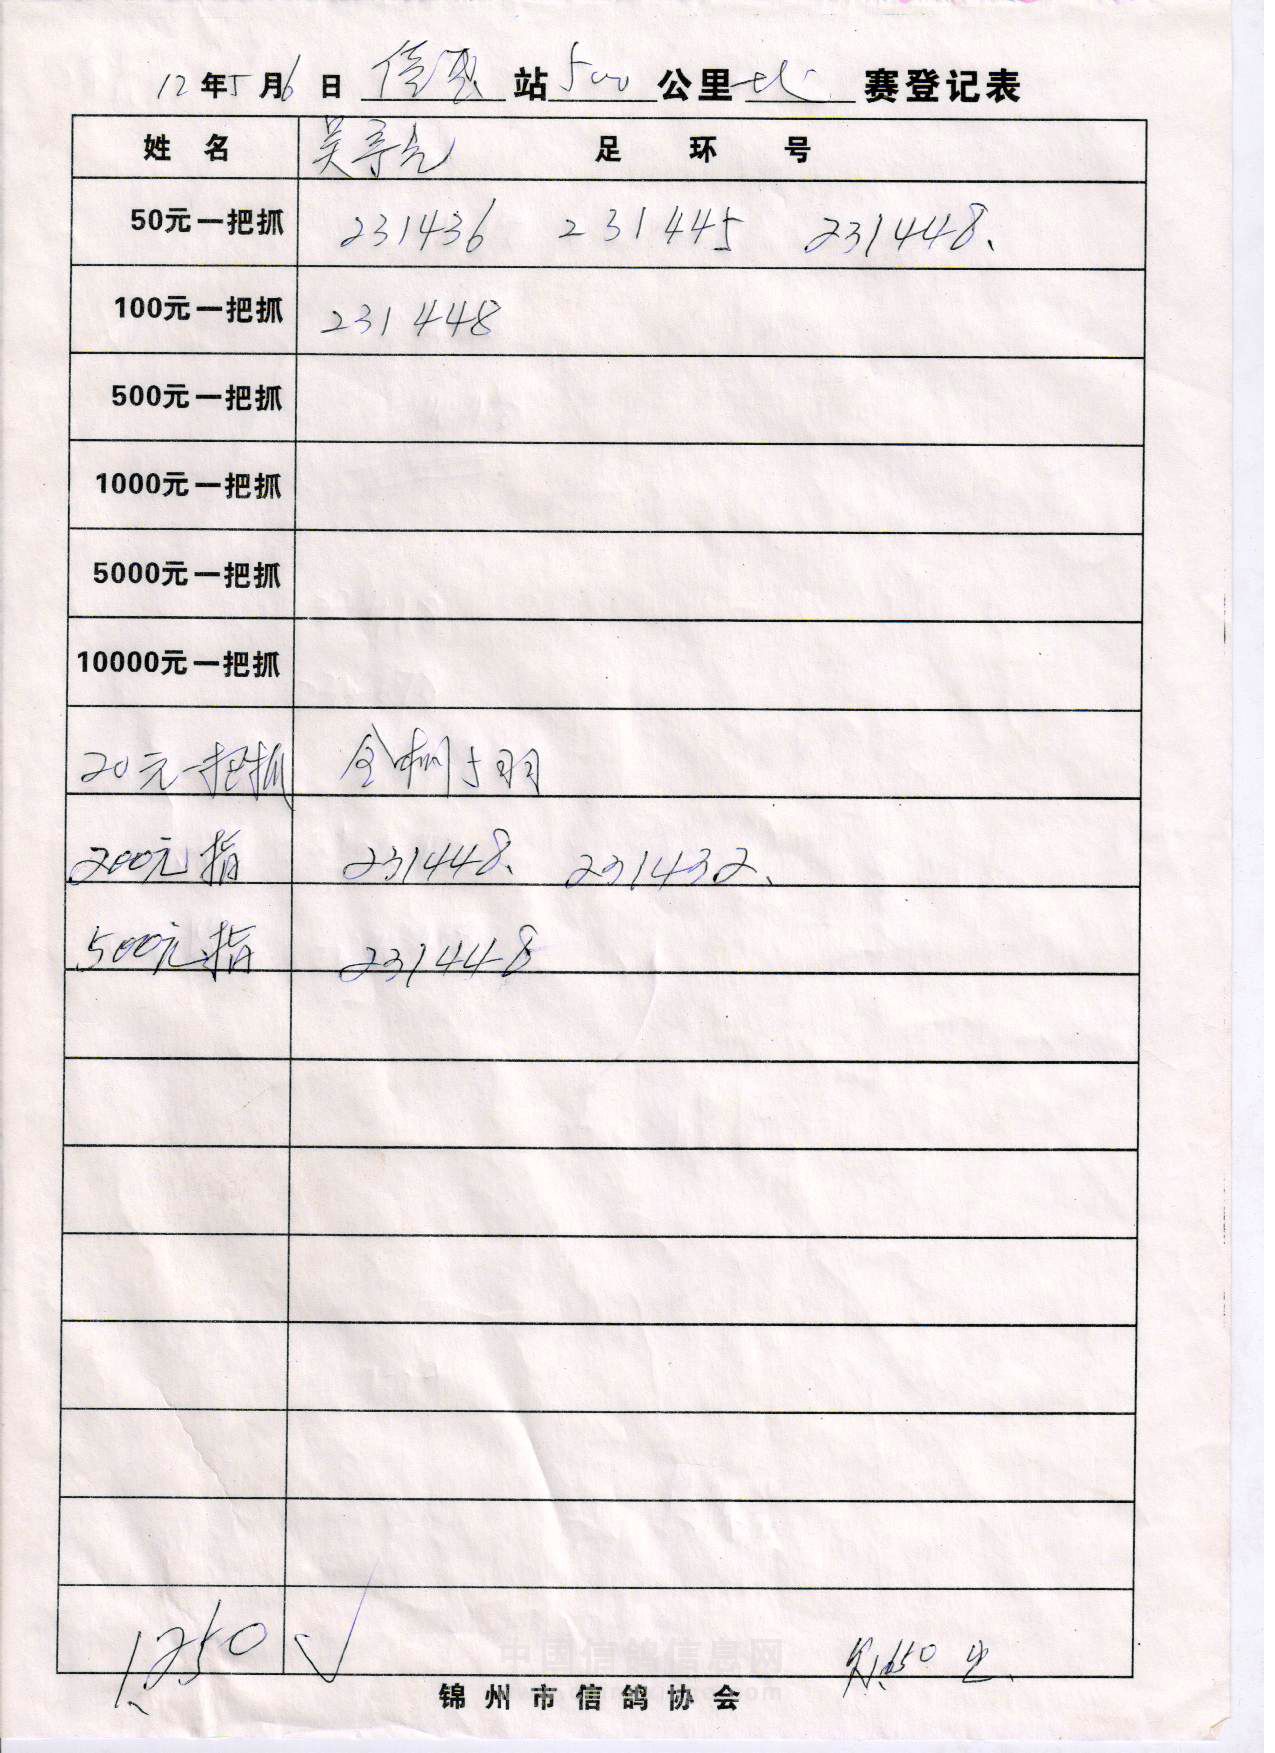 12年5月6日 站500公里 赛登记表
姓 名 吴 亮 足 环 号
50元一把抓 231436 231445 231448、
100元一把抓 231448
500元一把抓
1000元一把抓
5000元一把抓
10000元一把抓
20元一把抓 全栅5羽
200元指 231448、 231432、
500元指 231448
1250 √
中国信鸽信息网
锦州市信鸽协会